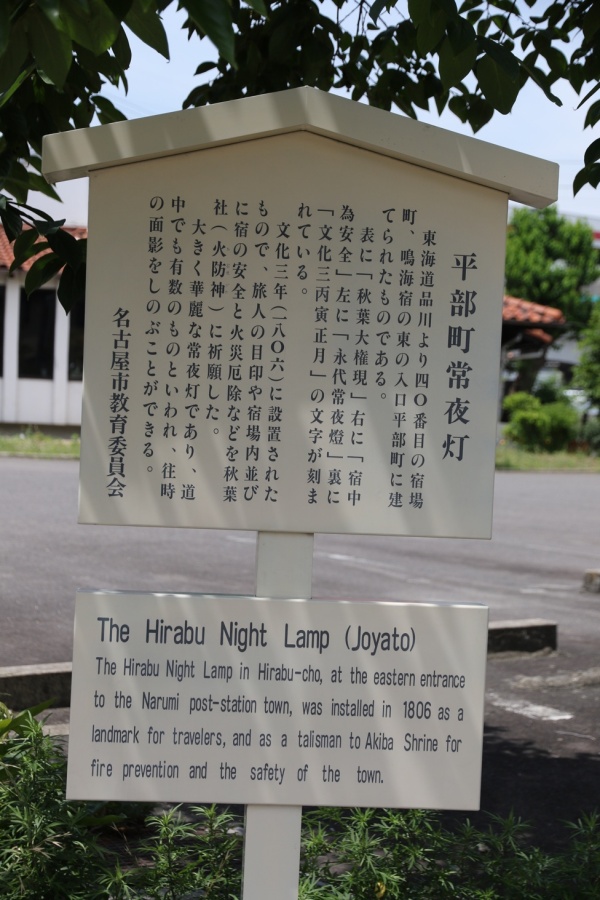 平部町常夜灯
東海道品川より四〇番目の宿場
町、鳴海宿の東の入口平部町に建
てられたものである。
表に「秋葉大権現」右に「宿中
為安全」左に「永代常夜燈」裏に
「文化三丙寅正月」の文字が刻ま
れている。
文化三年(一八〇六)に設置された
もので、旅人の目印や宿場内並び
に宿の安全と火災厄除などを秋葉
社(火防神)に祈願した。
大きく華麗な常夜灯であり、道
中でも有数のものといわれ、往時
の面影をしのぶことができる。
名古屋市教育委員会
The Hirabu Night Lamp (Joyato)
The Hirabu Night Lamp in Hirabu-cho, at the eastern entrance
to the Narumi post-station town, was installed in 1806 as a
landmark for travelers, and as a talisman to Akiba Shrine for
fire prevention and the safety of the town.